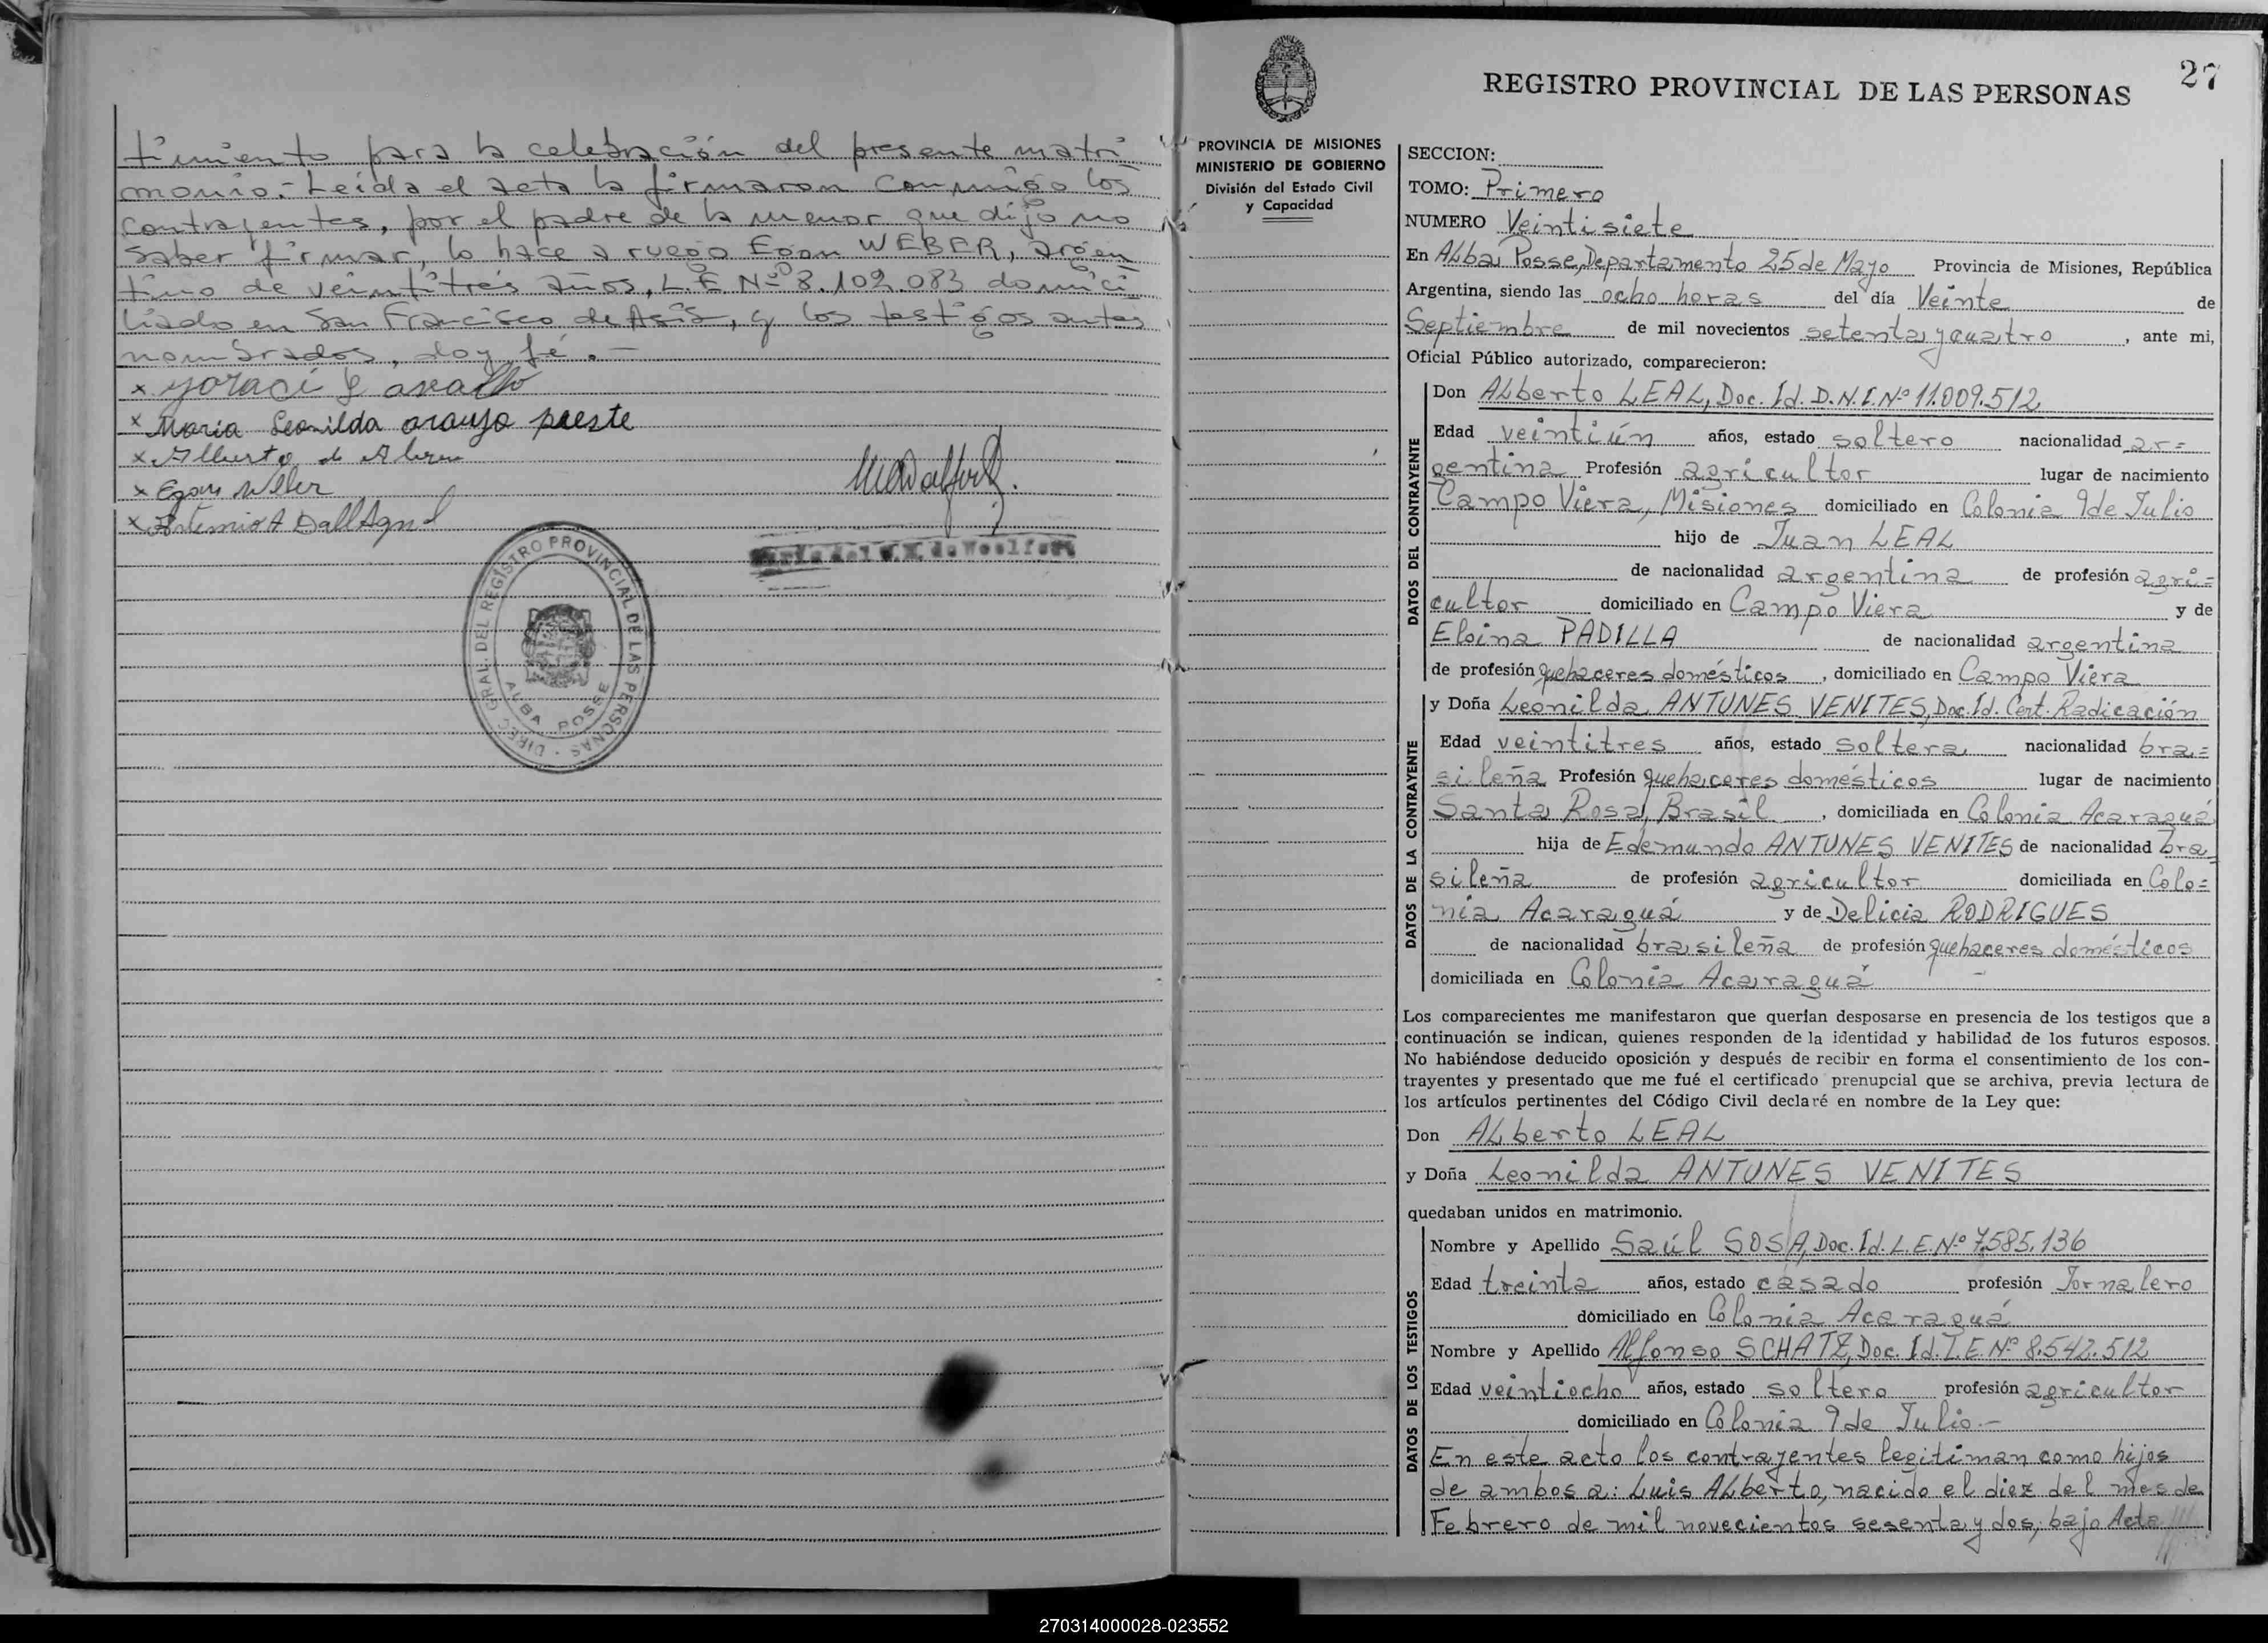 timiento para la celebración del presente matri
monio.- Leída el acta la firmaron conmigo los
contrayentes, por el padre de la menor que dijo no
saber firmar, lo hace a ruego Egon WEBER, argen
tino de veintitrés años, L.E. Nº 8.102.083 domici
liado en San Francisco de Asís, y los testigos antes
nombrados, doy fé.-
x
x Maria Leonilda araujo
x Alberto de
x Egon Weber
x Artemio A Dall Agnol
DIREC. GRAL. DEL REGISTRO PROVINCIAL DE LAS PERSONAS
ALBA POSSE
27
REGISTRO PROVINCIAL DE LAS PERSONAS
PROVINCIA DE MISIONES
MINISTERIO DE GOBIERNO
División del Estado Civil
y Capacidad
SECCION:
TOMO: Primero
NUMERO Veintisiete
En Alba Posse, Departamento 25 de Mayo Provincia de Misiones, República
Argentina, siendo las ocho horas del día Veinte de
Septiembre de mil novecientos setenta y cuatro, ante mi,
Oficial Público autorizado, comparecieron:
DATOS DEL CONTRAYENTE
Don Alberto LEAL, Doc. Id. D.N.I. Nº 11.009.512
Edad veintiún años, estado soltero nacionalidad ar=
gentina Profesión agricultor lugar de nacimiento
Campo Viera, Misiones domiciliado en Colonia 9 de Julio
hijo de Juan LEAL
de nacionalidad argentina de profesión agri=
cultor domiciliado en Campo Viera y de
Elsina PADILLA de nacionalidad argentina
de profesión quehaceres domésticos, domiciliado en Campo Viera
DATOS DE LA CONTRAYENTE
y Doña Leonilda ANTUNES VENITES, Doc. Id. Cert. Radicación
Edad veintitres años, estado soltera nacionalidad bra=
sileña Profesión quehaceres domésticos lugar de nacimiento
Santa Rosa, Brasil, domiciliada en Colonia Acaraguá
hija de Edemundo ANTUNES VENITES de nacionalidad bra=
sileña de profesión agricultor domiciliada en Colo=
nia Acaraguá y de Delicia RODRIGUES
de nacionalidad brasileña de profesión quehaceres domésticos
domiciliada en Colonia Acaraguá
Los comparecientes me manifestaron que querían desposarse en presencia de los testigos que a
continuación se indican, quienes responden de la identidad y habilidad de los futuros esposos.
No habiéndose deducido oposición y después de recibir en forma el consentimiento de los con-
trayentes y presentado que me fué el certificado prenupcial que se archiva, previa lectura de
los artículos pertinentes del Código Civil declaré en nombre de la Ley que:
Don Alberto LEAL
y Doña Leonilda ANTUNES VENITES
quedaban unidos en matrimonio.
DATOS DE LOS TESTIGOS
Nombre y Apellido Saúl SOSA, Doc. Id. L.E. Nº 7.585.136
Edad treinta años, estado casado profesión Jornalero
domiciliado en Colonia Acaraguá
Nombre y Apellido Alfonso SCHATZ, Doc. Id. L.E. Nº 8.542.512
Edad veintiocho años, estado soltero profesión agricultor
domiciliado en Colonia 9 de Julio.-
En este acto los contrayentes legitiman como hijos
de ambos a: Luis Alberto, nacido el diez del mes de
Febrero de mil novecientos sesenta y dos, bajo Acta ///
270314000028-023552